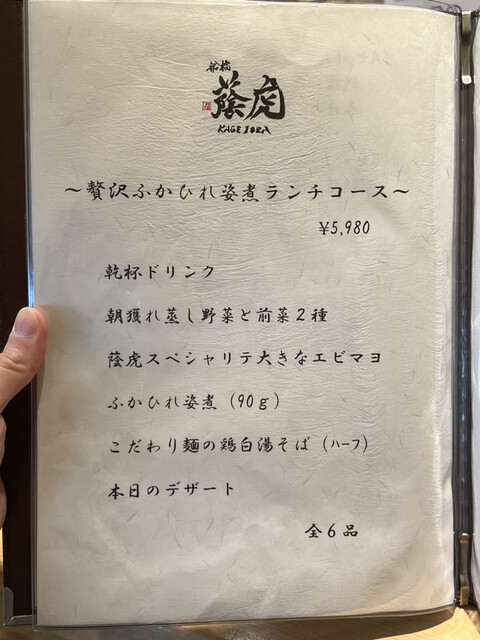 船橋
蔭虎
KAGETORA
～贅沢ふかひれ姿煮ランチコース～
¥5,980
乾杯ドリンク
朝獲れ蒸し野菜と前菜2種
蔭虎スペシャリテ大きなエビマヨ
ふかひれ姿煮（90g）
こだわり麺の鶏白湯そば（ハーフ）
本日のデザート
全6品